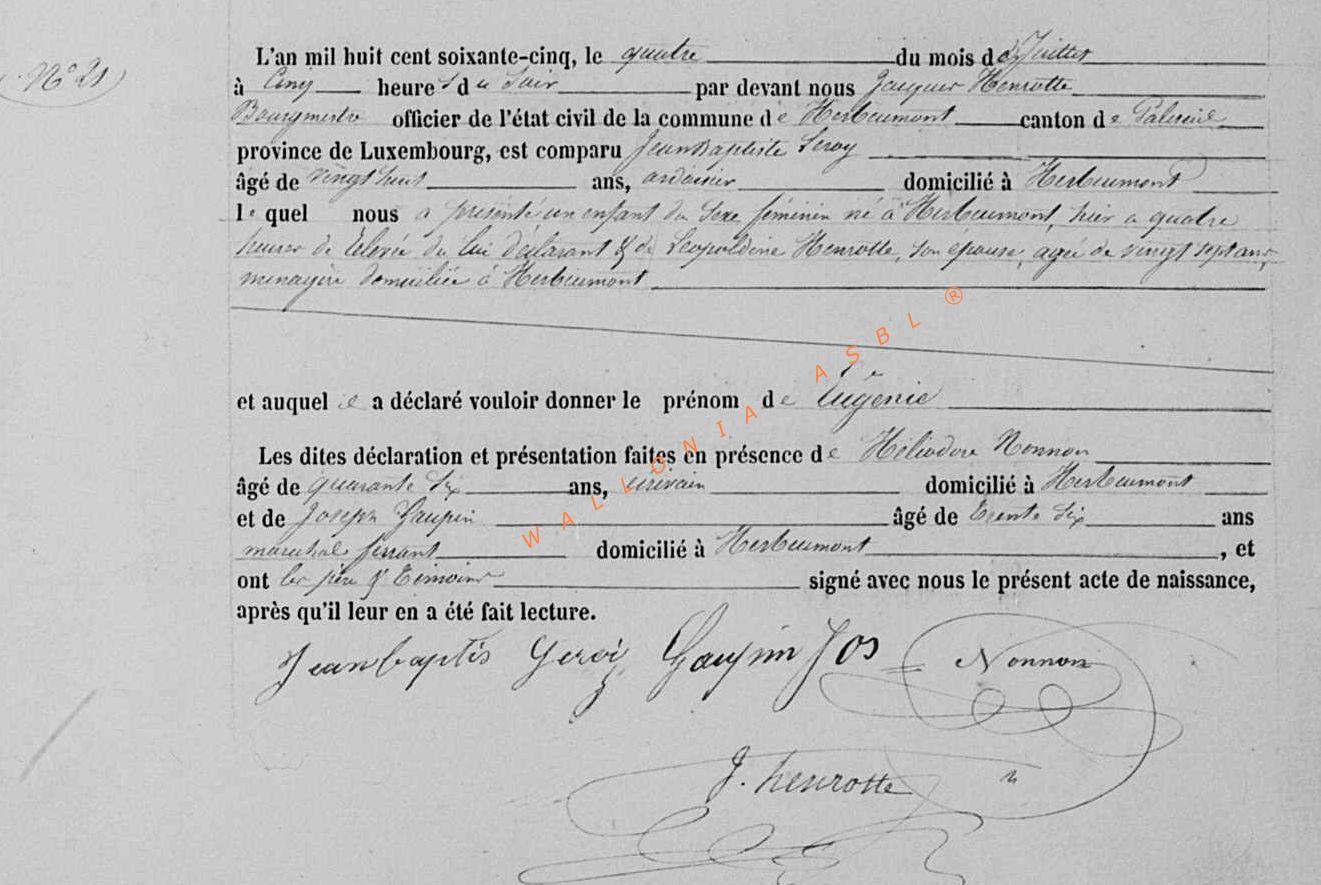 N° 21
L'an mil huit cent soixante-cinq, le quatre du mois de Juillet
à Cinq heures du Soir par devant nous Jacques Henrotte
Bourgmestre officier de l'état civil de la commune de Herbeumont canton de Paliseul
province de Luxembourg, est comparu Jean Baptiste
âgé de vingt huit ans, ardoisier domicilié à Herbeumont
lequel nous a présenté un enfant du Sexe féminin né à Herbeumont, hier a quatre
heures de Relevée de lui déclarant & de Leopoldine Henrotte, son épouse, agée de vingt sept ans,
menagère domiciliée à Herbeumont
et auquel il a déclaré vouloir donner le prénom de Eugénie
Les dites déclaration et présentation faites en présence de Héliodore Nonnon
âgé de quarante Six ans, domicilié à Herbeumont
et de Joseph Gaupin âgé de Trente Six ans
maréchal ferrant domicilié à Herbeumont, et
ont les père & Témoins signé avec nous le présent acte de naissance,
après qu'il leur en a été fait lecture.
Jean baptis Gaupin Jos Nonnon
J. henrotte
WALLONIA ASBL ®